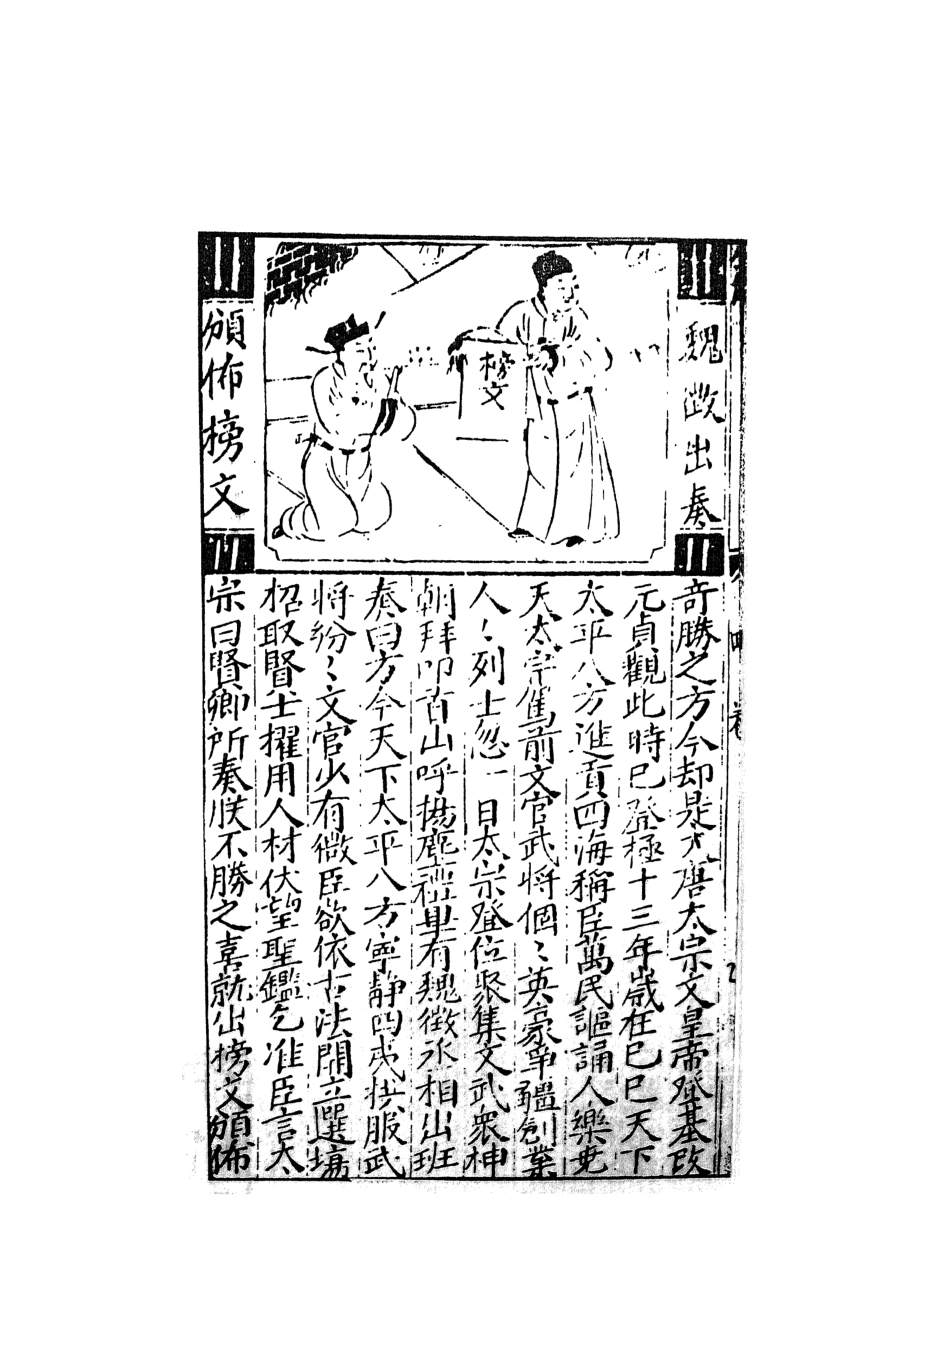 魏徵出奏
頒佈榜文
榜文
奇勝之方今却是大唐太宗文皇帝登基改
元貞觀此時已登極十三年歲在己巳天下
太平八方進貢四海稱臣萬民謳誦人樂堯
天太宗駕前文官武將個〻英豪爭疆創業
人〻列士忽一日太宗登位聚集文武衆神
朝拜叩首山呼揚塵禮畢有魏徵丞相出班
奏曰方今天下太平八方寧静四夷拱服武
將紛〻文官少有微臣欲依古法開立選塲
招取賢士擢用人材伏望聖鑑乞准臣言太
宗曰賢卿所奏朕不勝之喜就出榜文頒佈